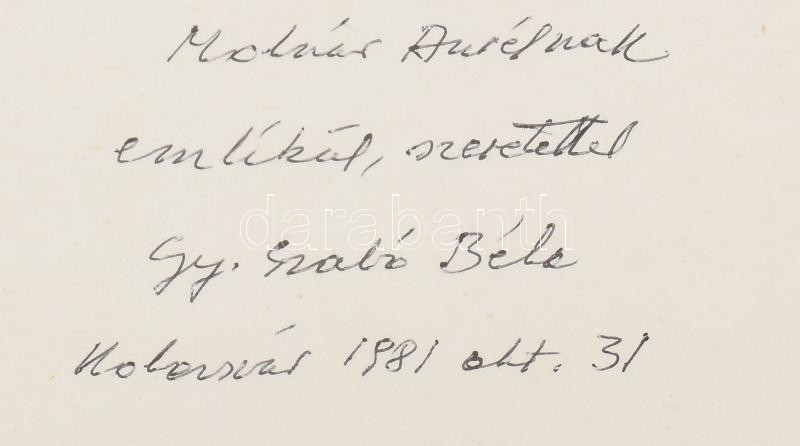 Molnár Aurélnak
emlékül, szeretettel
darabanth
Gy. Szabó Béla
Kolozsvár 1981 okt. 31